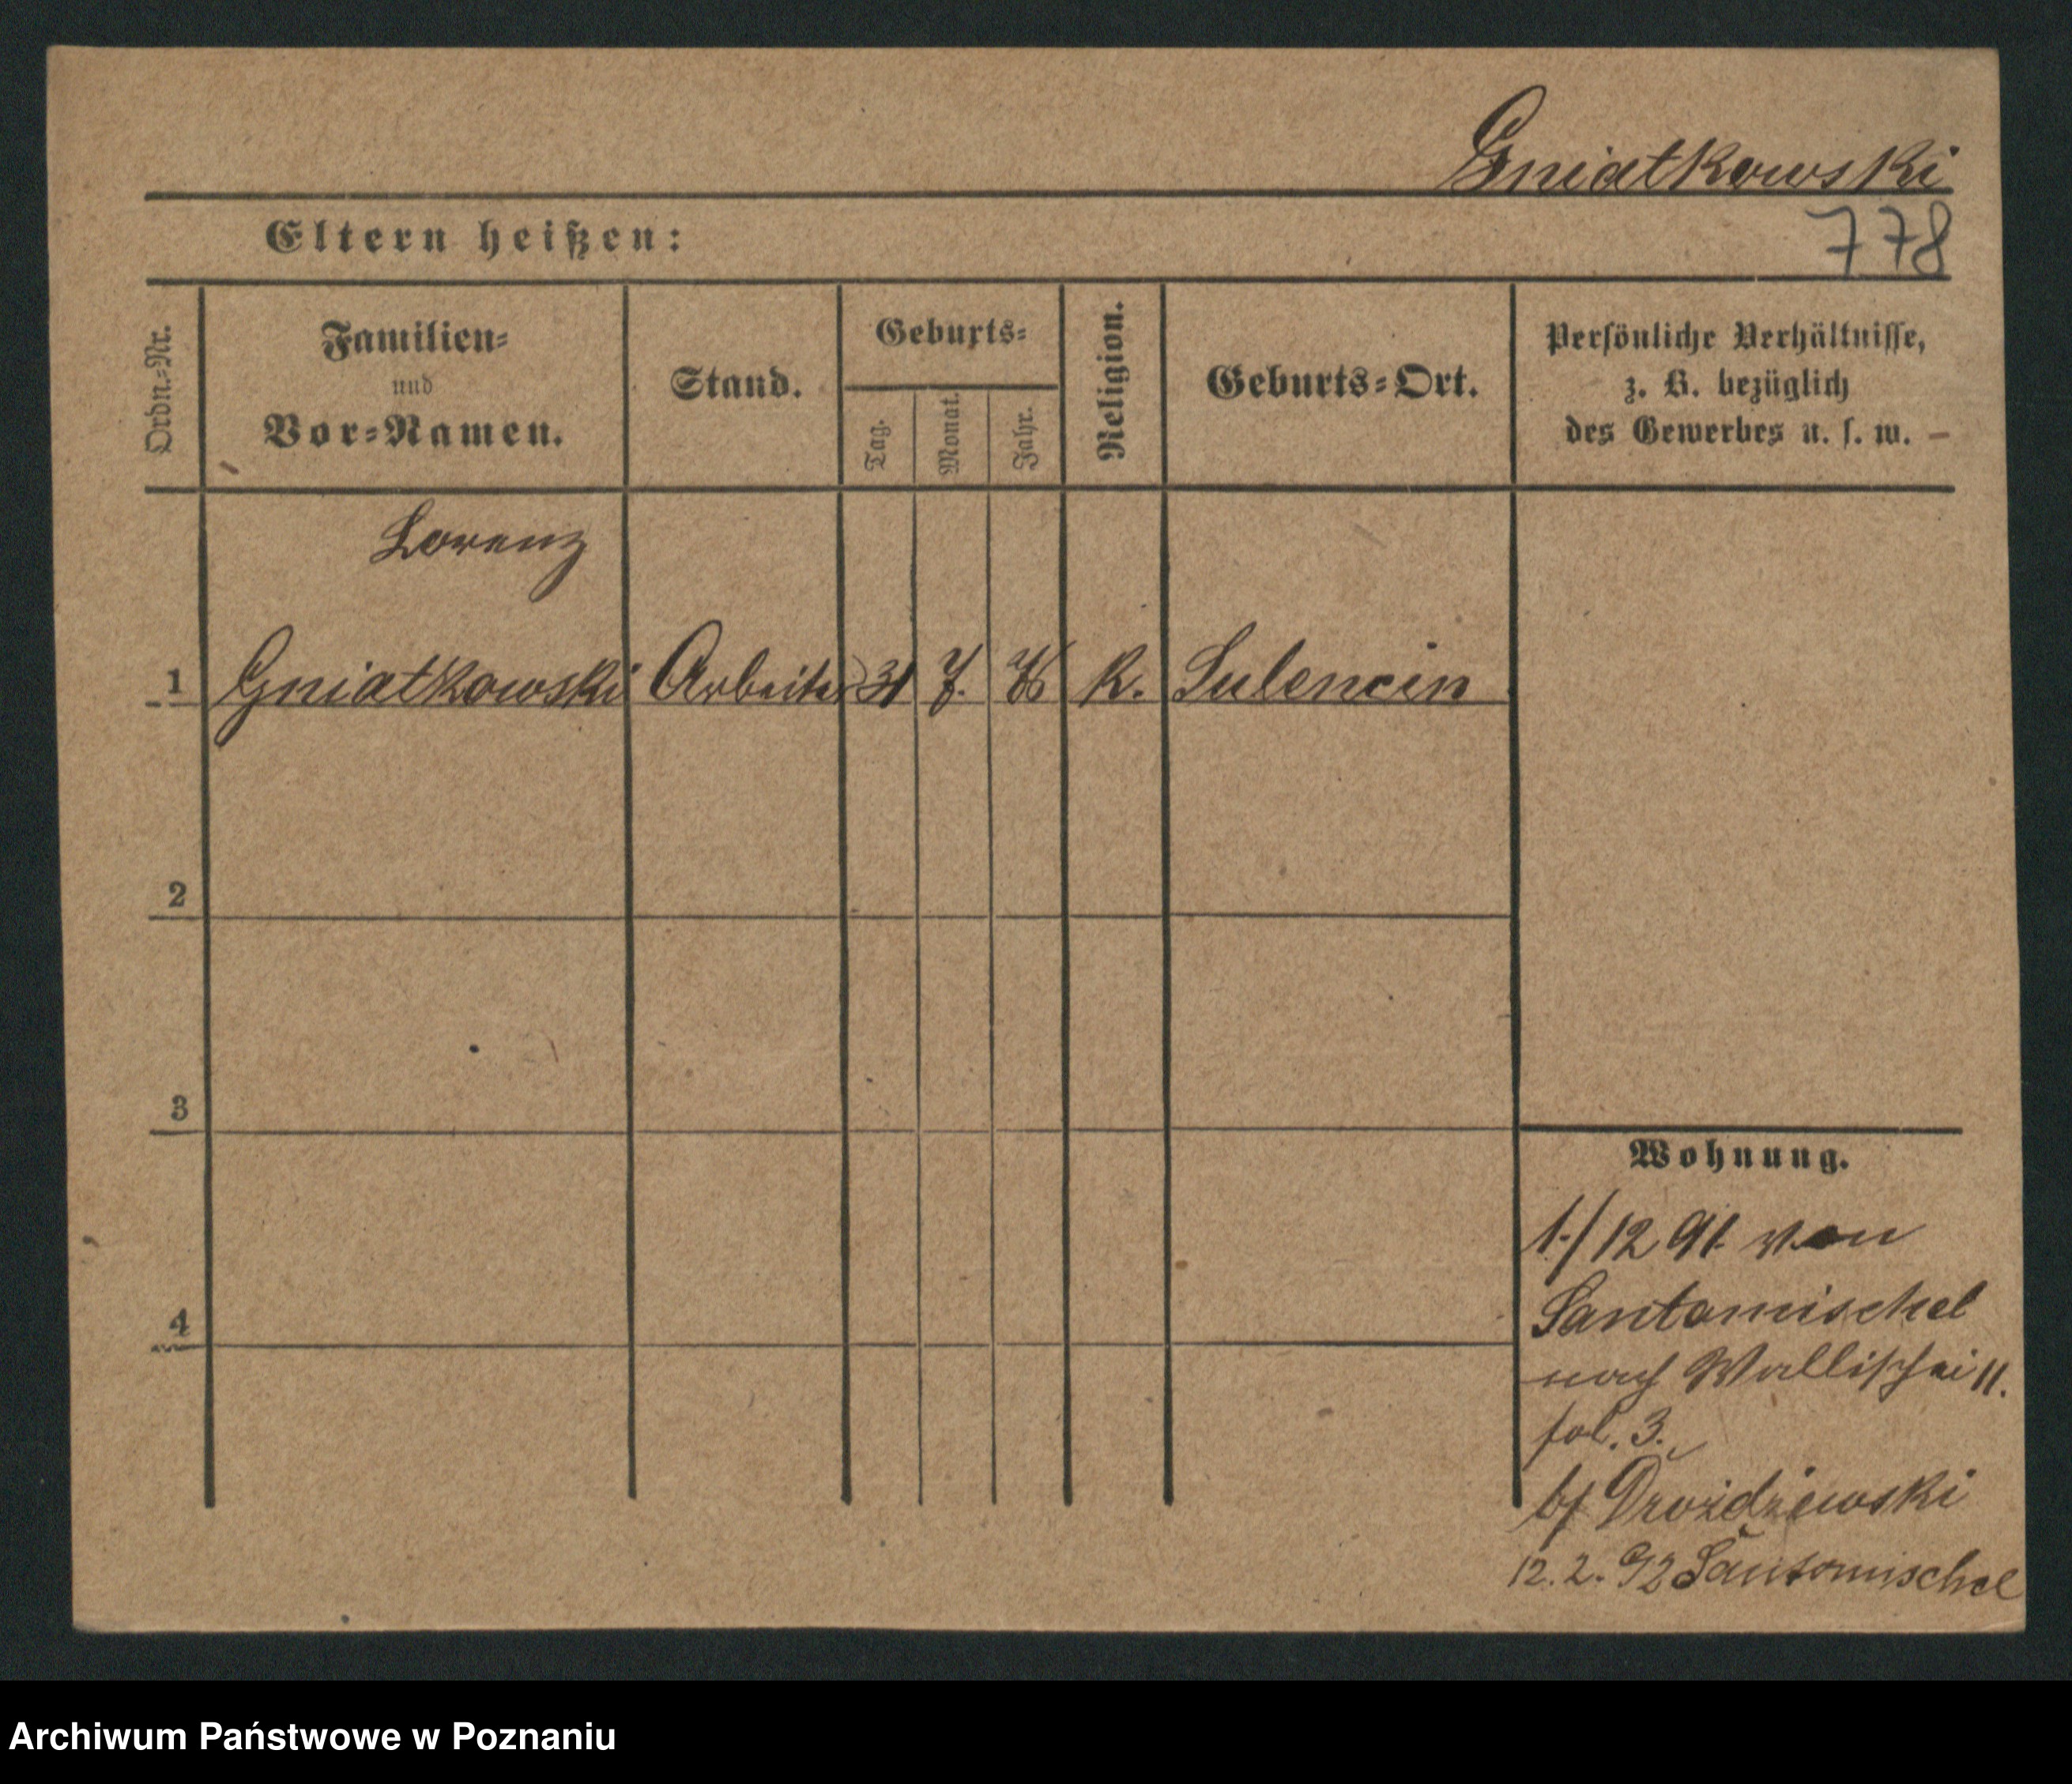 Gniatkowski
Eltern heißen:
778
Ordn.-Nr.
Familien-
und
Vor-Namen.
Stand.
Geburts-
Tag.
Monat.
Jahr.
Religion.
Geburts-Ort.
Persönliche Verhältnisse,
z. B. bezüglich
des Gewerbes u. s. w.
Lorenz
1 Gniatkowski Arbeiter 31 7. K. Sulencin
2
3
4
Wohnung.
1./12 91. von
Santomischel
nach Wallischei 11.
fol. 3.
b/ Drożdżewski
12. 2. 92 Santomischel
Archiwum Państwowe w Poznaniu